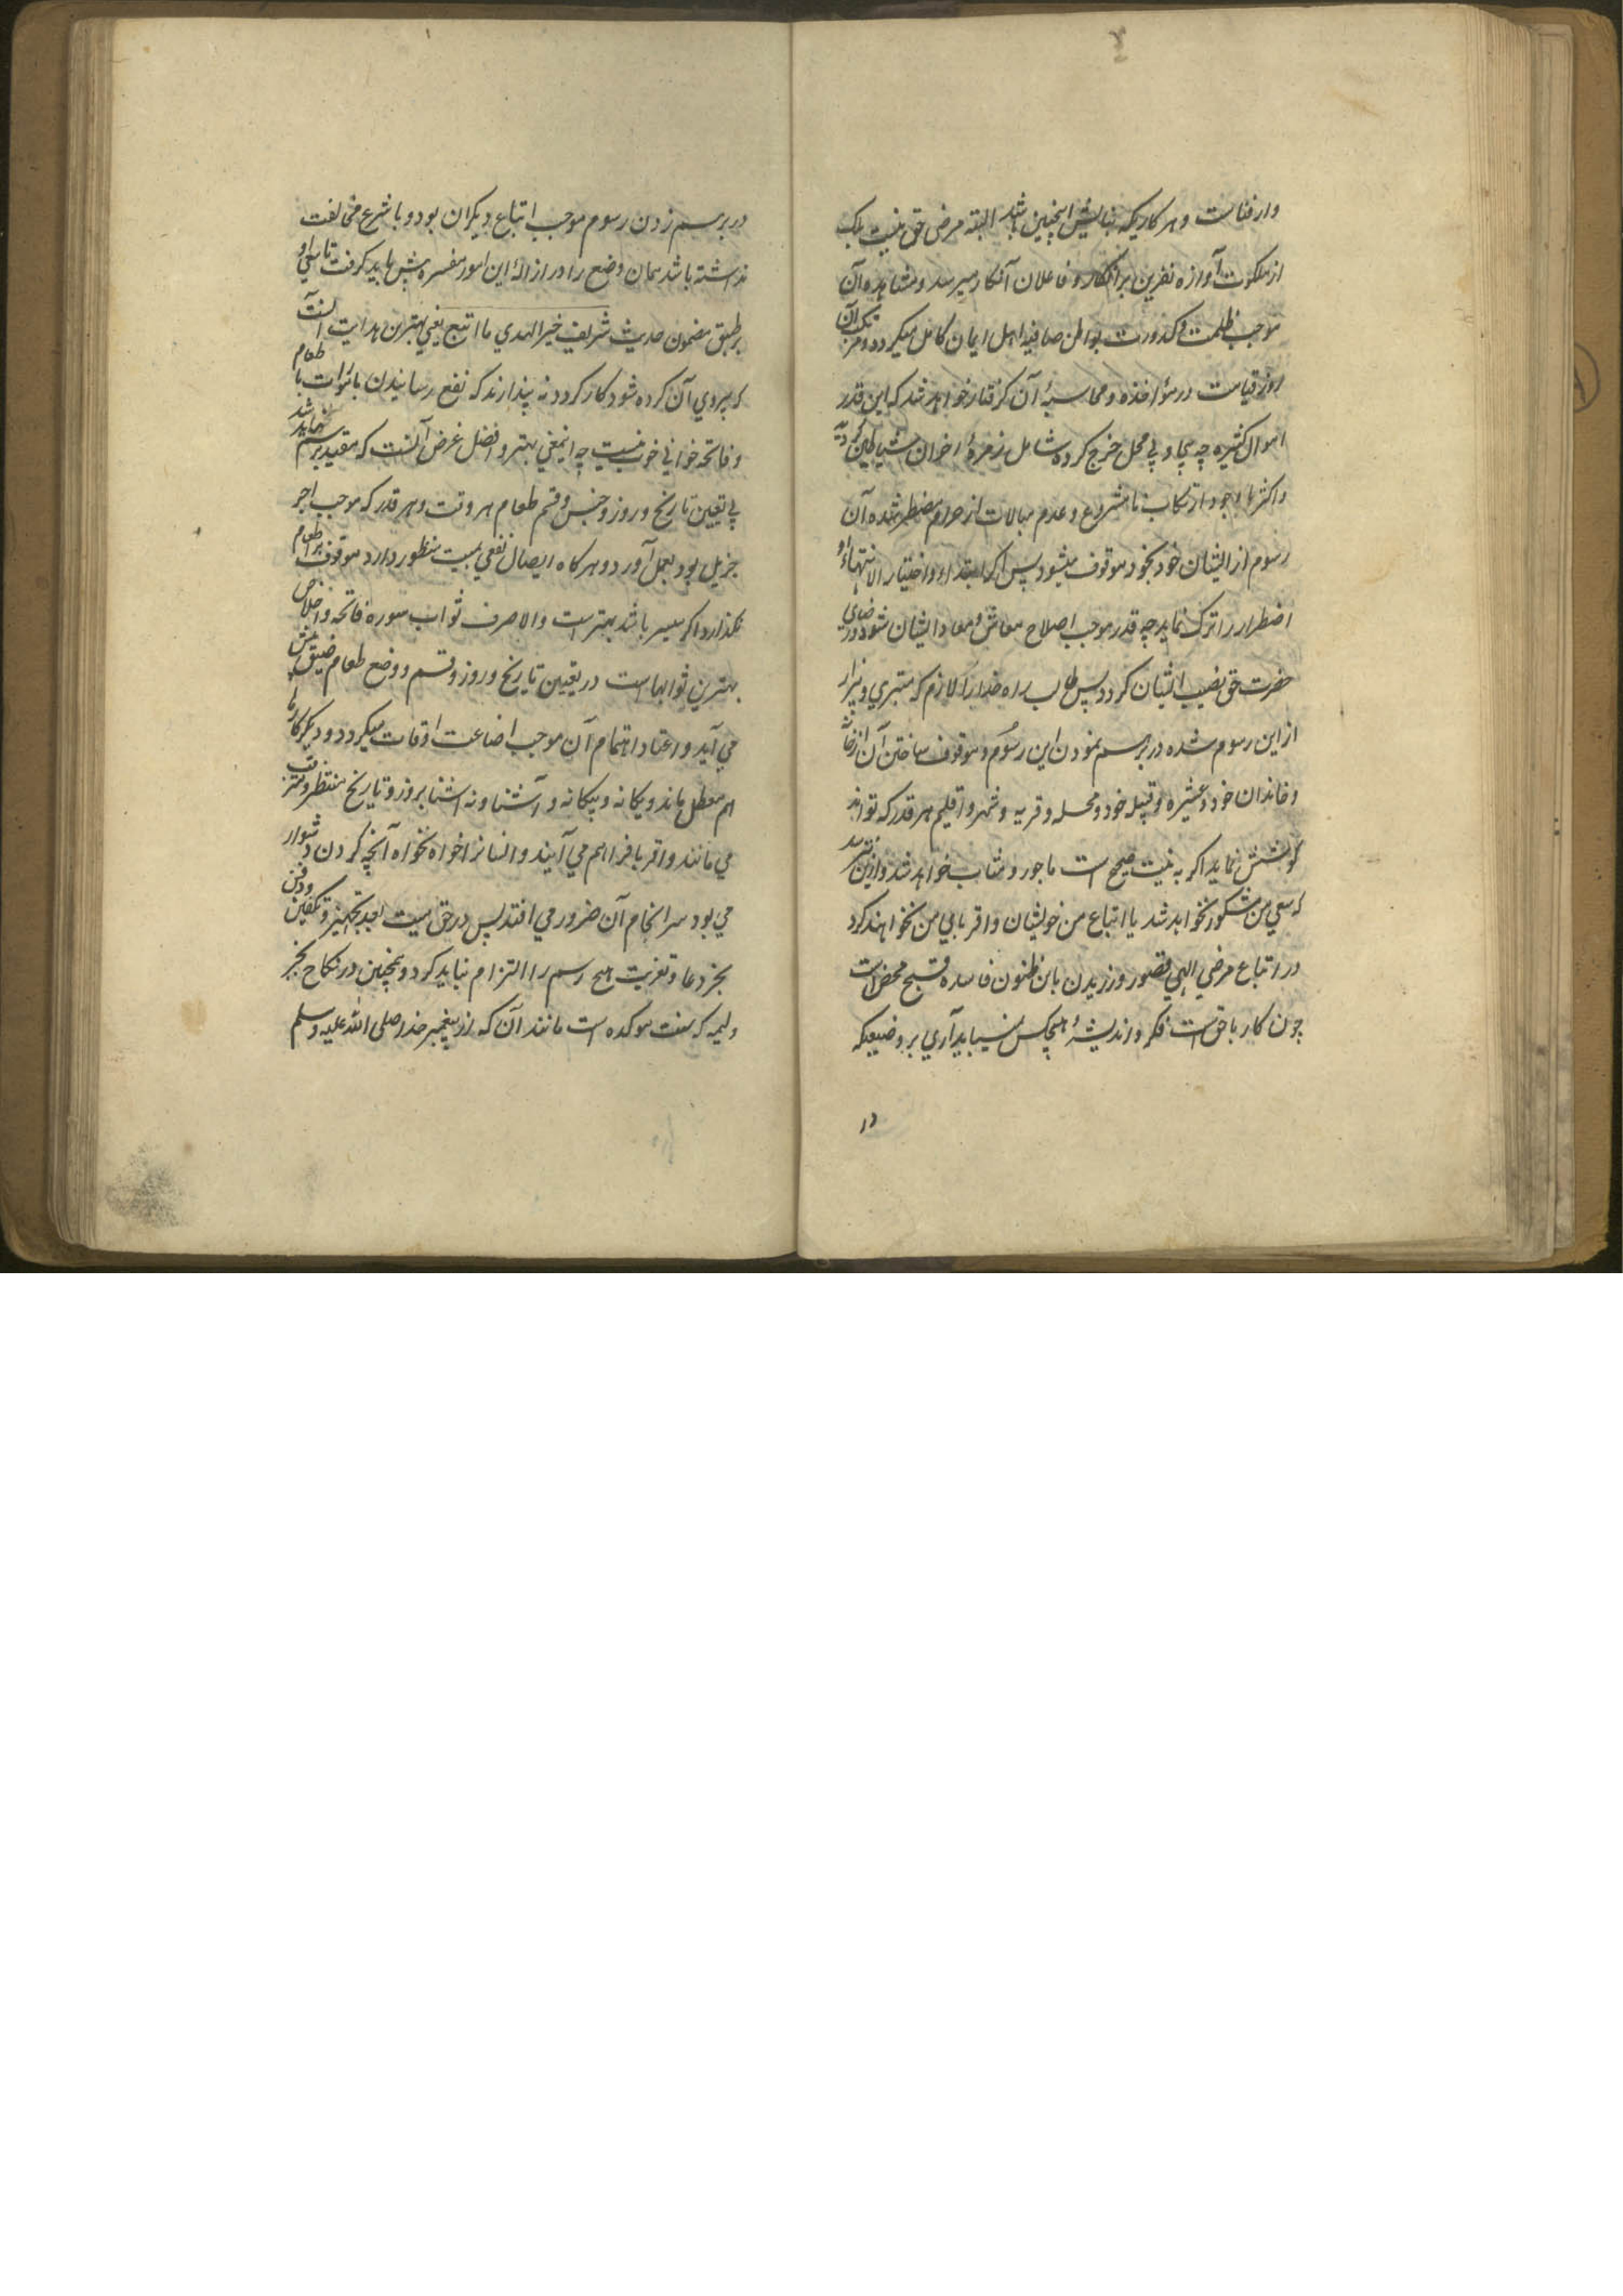 ۴
وارفناست و هر کاریکه بنایش اینچنین باشد البته مرضی حق نیست بلکه
از ملکوت آوازه نفرین بر آنکار و فاعلان آنکار میرسد و مشاهده آن
موجب ظلمت و کدورت بواطن صافیه اهل ایمان کامل میگردد و مرتکب آن
روز قیامت در مؤاخذه و محاسبهٔ آن گرفتار خواهد شد که این قدر
اموال کثیره چه بیجا و بی محل خرج کرده شامل زمرهٔ اخوان شیاطین
و اکثر با وجود ارتکاب نامشروع و عدم مبالات از حرام مضطر شده آن
رسوم از ایشان خود بخود موقوف میشود پس اگر ابتداء و اختیار الا انتهاء و
اضطرار را ترک نماید چه قدر موجب اصلاح معاش و معاد ایشان شود و رضای
حضرت حق نصیب ایشان گردد پس طالب راه خدا را لازم که متبری و بیزار
از این رسوم شده در برهم نمودن این رسوم و موقوف ساختن آن از خانه
و خاندان خود و عشیره و قبیله خود و محله و قریه و شهر و اقلیم هر قدر که تواند
کوشش نماید اگر به نیت صحیح است ماجور و مثاب خواهد شد و ازین نترسد
که سعی من مشکور نخواهد شد یا اتباع من خویشان و اقربای من نخواهند کرد
در اتباع مرضی الهی قصور ورزیدن باین ظنون فاسده قبیح محض است
چون کار با حق است فکر و اندیشهٔ هیچکس نمیباید آری بر وضعیکه
در
در برهم زدن رسوم موجب اتباع دیگران بود و با شرع مخالفت
نداشته باشد همان وضع را در ازالهٔ این امور مفسره پیش باید گرفت تا سعی او
بر طبق مضمون حدیث شریف خیر الهدی ما اتبع یعنی بهترین هدایت آنست
که پیروی آن کرده شود کارگر و نه پندارند که نفع رسانیدن باموات باطعام
و فاتحه خوانی خوب نیست چه اینمعنی بهتر و افضل غرض آنست که مقید برسم نباید شد
بی تعیین تاریخ و روز و جنس و قسم طعام هر وقت و هر قدر که موجب اجر
جزیل بود بعمل آورد و هرگاه ایصال نفعی بمیت منظور دارد موقوف بر اطعام
نگذارد اگر میسر باشد بهتر است والا صرف ثواب سوره فاتحه و اخلاص
بهترین ثوابهاست در تعیین تاریخ و روز و قسم و وضع طعام ضیق پیش
می آید و اعتاد اهتمام آن موجب اضاعت اوقات میگردد و دیگر کارها
هم معطل ماند و یگانه و بیگانه و آشنا و نه آشنا بروز و تاریخ منتظر و مترقب
می مانند و اقربا فراهم می آیند و انسانرا خواه نخواه آنچه کردن دشوار
می بود سرانجام آن ضرور می افتد پس در حق میت بعد تجهیز و تکفین و دفن
بجز دعا و تعزیت هیچ رسم را التزام نباید کرد و همچنین در نکاح بجز
ولیمه که سنت موکده است مانند آن که از پیغمبر خدا صلی الله علیه وسلم